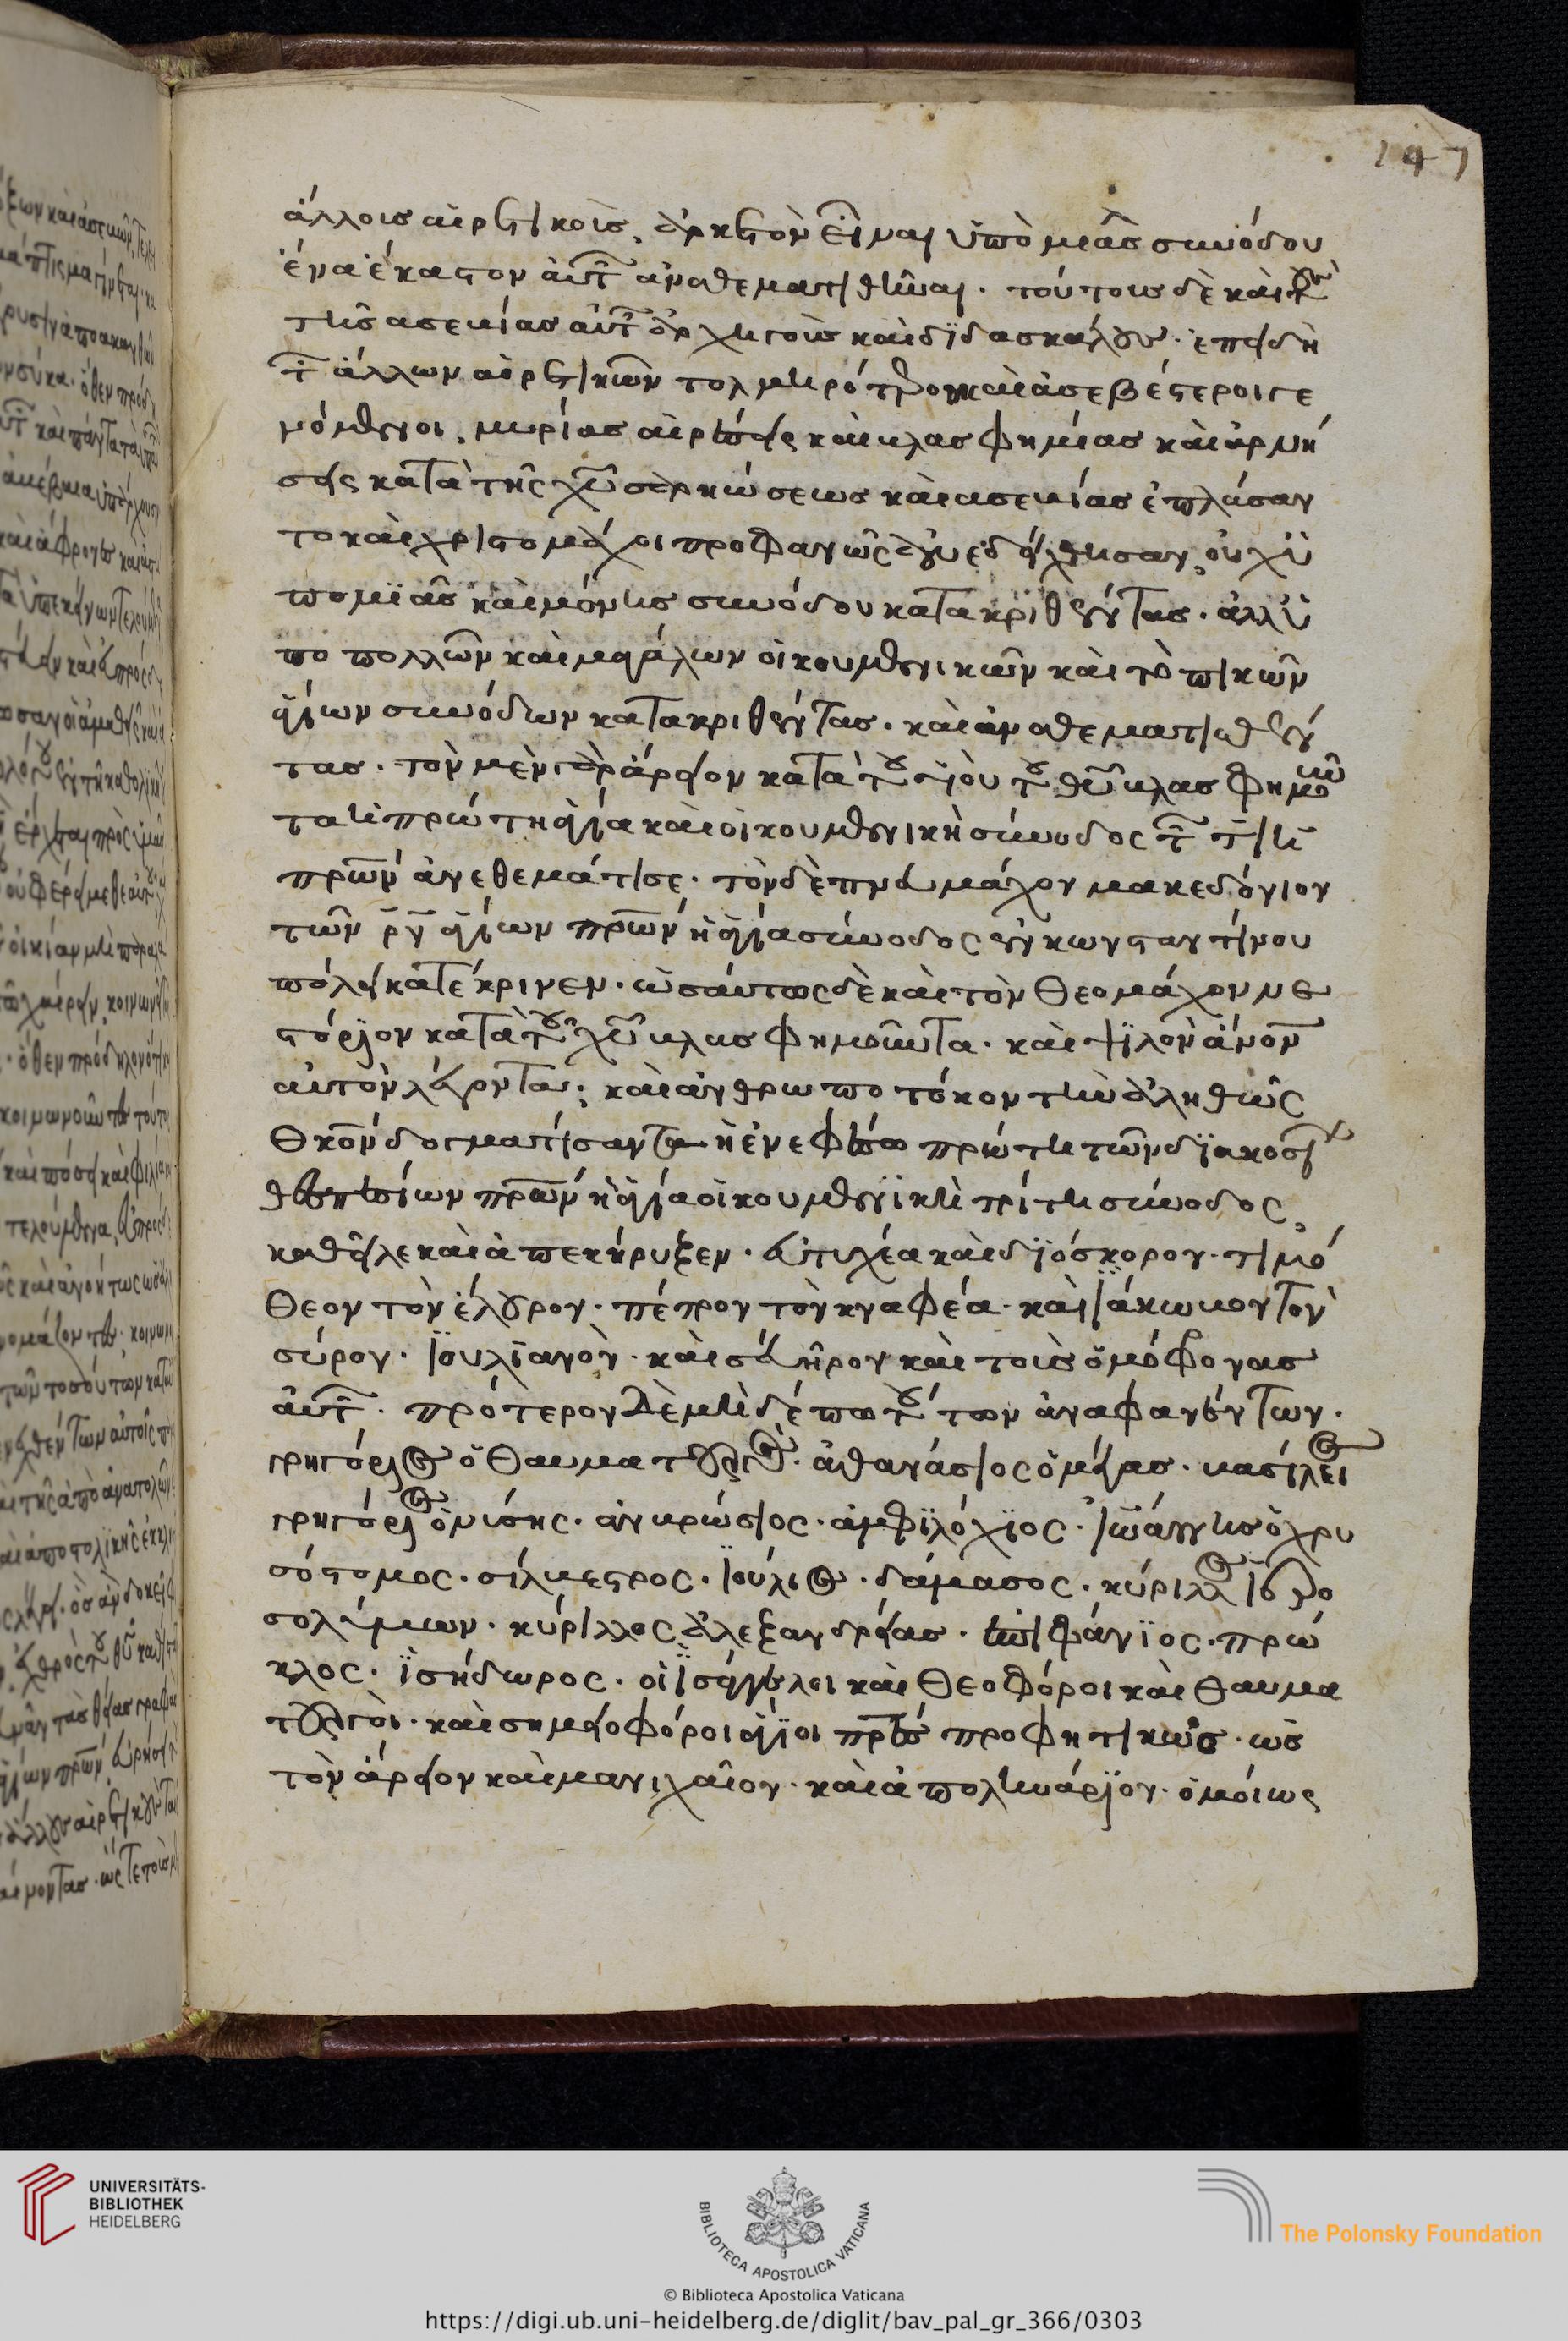 147
ἄλλοις αἱρετικοῖς, ἀρκετὸν εἶναι ὑπὸ μιᾶς συνόδου
ἕνα ἕκαστον αὐτῶν ἀναθεματισθῆναι. τούτους δὲ καὶ τοὺς
τῆς ἀσεβείας αὐτῶν ἀρχηγοὺς καὶ διδασκάλους. ἐπειδὴ
τῶν ἄλλων αἱρετικῶν τολμηρότεροι καὶ ἀσεβέστεροι γε
νόμενοι, μυρίας αἱρέσεις καὶ βλασφημίας καὶ ἀρνή
σεις κατὰ τῆς χυ σαρκώσεως καὶ ἀσεβείας ἐπλάσαν
το καὶ χριστομάχοι προφανῶς ἀνεδείχθησαν, οὐχ ὑ
πο μιᾶς καὶ μόνης συνόδου κατακριθέντας. ἀλλ ὑ
πο πολλῶν καὶ μεγάλων οἰκουμενικῶν καὶ τοπικῶν
ἁγίων συνόδων κατακριθέντας. καὶ ἀναθεματισθέν
τας. τὸν μὲν γὰρ ἄρειον κατὰ τοῦ υἱοῦ τοῦ θυ βλασφημοῦν
τα ἡ πρώτη ἁγία καὶ οἰκουμενικὴ σύνοδος τῶν τιη
πρων ἀνεθεμάτισε. τὸν δὲ πνευμάχον μακεδόνιον
τῶν ρν ἁγίων πρων ἡ ἁγία σύνοδος ἐν κωνσταντίνου
πόλει κατέκρινεν. ὡσαύτως δὲ καὶ τὸν θεομάχον νε
στόριον κατὰ τοῦ χυ βλασφημοῦντα. καὶ ψιλὸν ανον
αὐτὸν λέγοντα, καὶ ἀνθρωποτόκον τὴν ἀληθῶς
θκον δογματίσαντα ἡ ἐν ἐφέσω πρώτη τῶν διακοσίων
πρων ἡ ἁγία οἰκουμενικὴ τρίτη σύνοδος,
καθεῖλε καὶ ἀπεκήρυξεν. εὐτυχέα καὶ διόσκορον. τιμό
θεον τὸν ἔλουρον. πέτρον τὸν κναφέα. καὶ ἰάκωβον τὸν
σύρον. ἰουλιανὸν. καὶ σευῆρον καὶ τοὺς ὁμόφρονας
αὐτῶν. πρότερον δὲ μὴ δέπω τούτων ἀναφανέντων.
γρηγόριος ὁ θαυματουργός. ἀθανάσιος ὁ μέγας. βασίλειος
γρηγόριος ὁ νύσης. ἀμβρώσιος. ἀμφιλόχιος. ἰωάννης ὁ χρυ
σόστομος. σίλβεστρος. ἰούλιος. δάμασος. κύριλλος ἱερο
σολύμων. κύριλλος ἀλεξανδρείας. ἐπιφάνιος. πρώ
κλος. ἰσήδωρος. οἱ ἰσάγγελοι καὶ θεοφόροι καὶ θαυμα
τουργοὶ. καὶ σημειοφόροι ἅγιοι πρες προφητικῶς. ὡς
τὸν ἄρειον καὶ μανιχαῖον. καὶ ἀπολινάριον. ὁμοίως
UNIVERSITÄTS-
BIBLIOTHEK
HEIDELBERG
BIBLIOTECA APOSTOLICA VATICANA
The Polonsky Foundation
© Biblioteca Apostolica Vaticana
https://digi.ub.uni-heidelberg.de/diglit/bav_pal_gr_366/0303